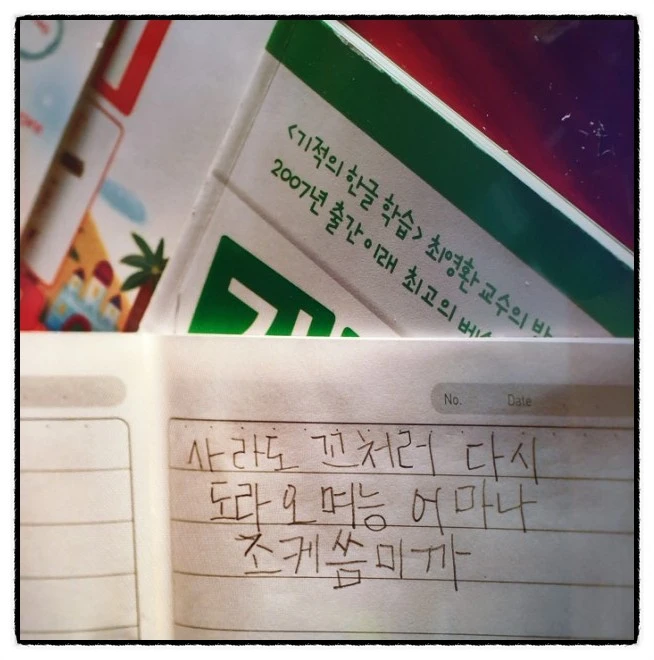 <기적의 한글 학습> 최영환 교수의
2007년 출간 이래 최고의
No. Date
사라도 꼬처러 다시
도라오며능 어마나
조케씀미까